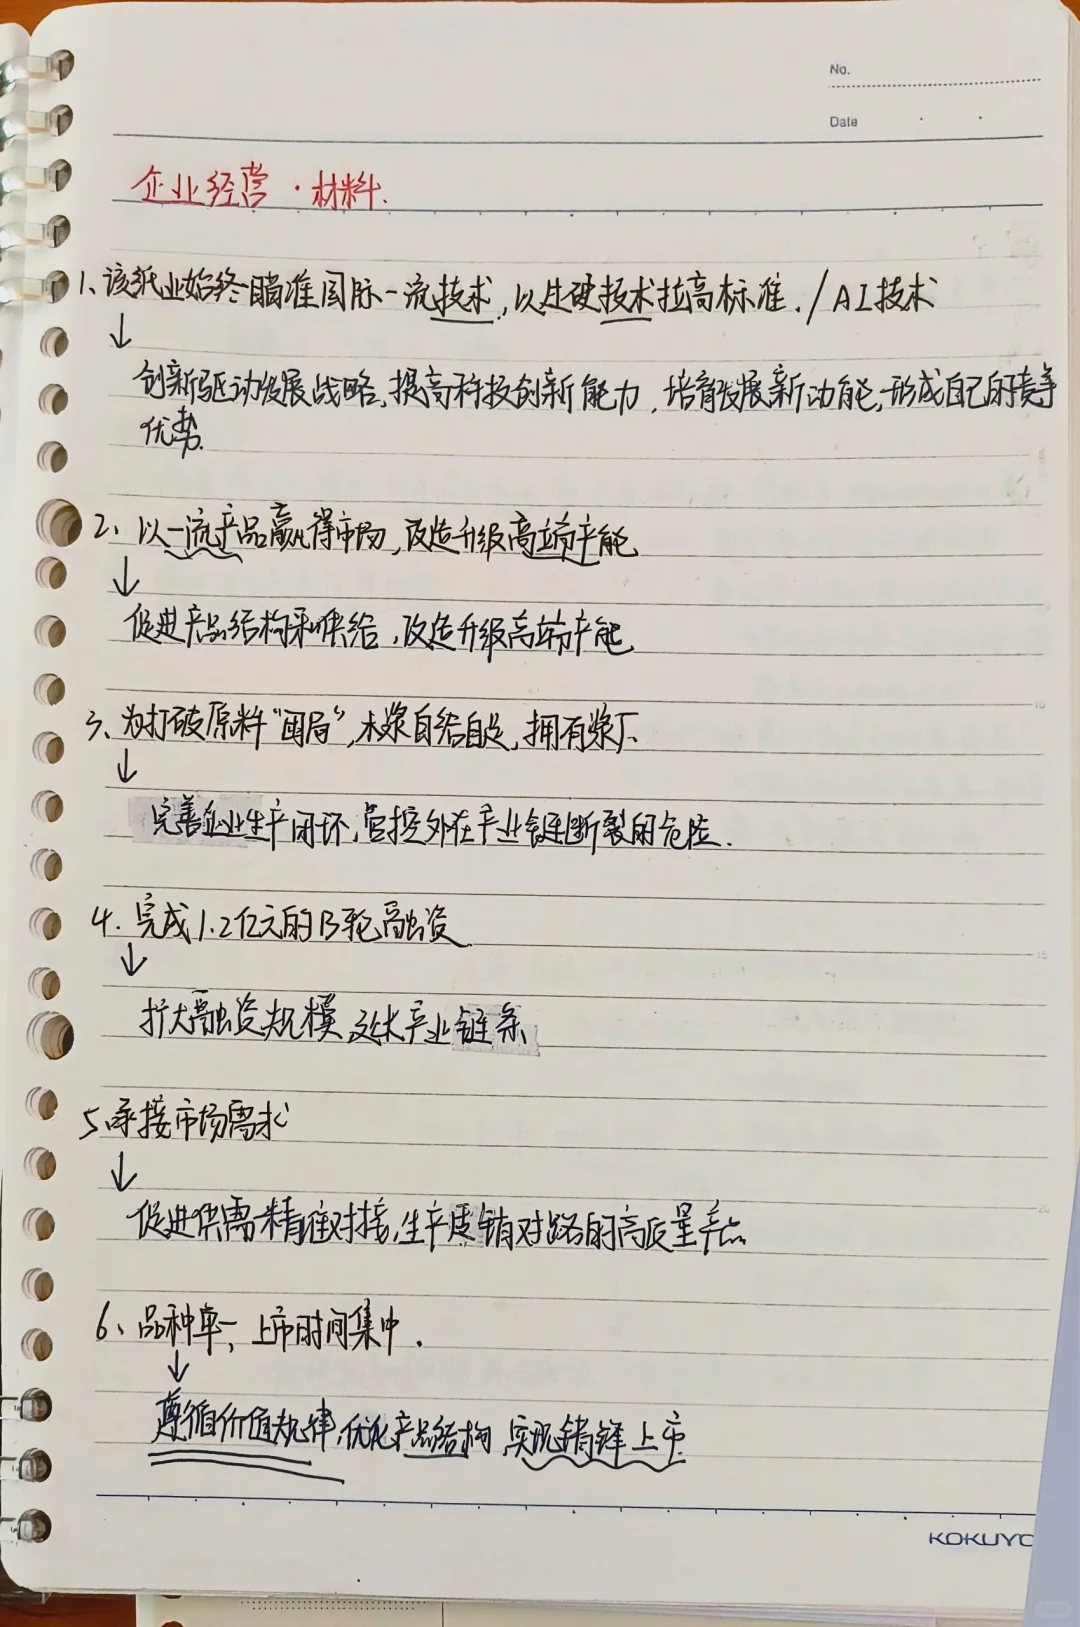 No.
Date
企业经营·材料.
1、该纸业始终瞄准国际一流技术,以过硬技术拉高标准./AI技术
↓
创新驱动发展战略,提高科技创新能力,培育发展新动能,形成自己的竞争
优势.
2、以一流产品赢得市场,改造升级高端产能
↓
促进产品结构和供给,改造升级高端产能
3、为打破原料“困局”,木浆自给自足,拥有浆厂.
↓
完善企业生产闭环,管控外在产业链断裂的危险.
4.完成1.2亿元的B轮融资
↓
扩大融资规模 延长产业链条
5.承接市场需求
↓
促进供需精准对接,生产适销对路的高质量产品
6、品种单一,上市时间集中.
↓
遵循价值规律,优化产品结构,实现错锋上市
KOKUYO